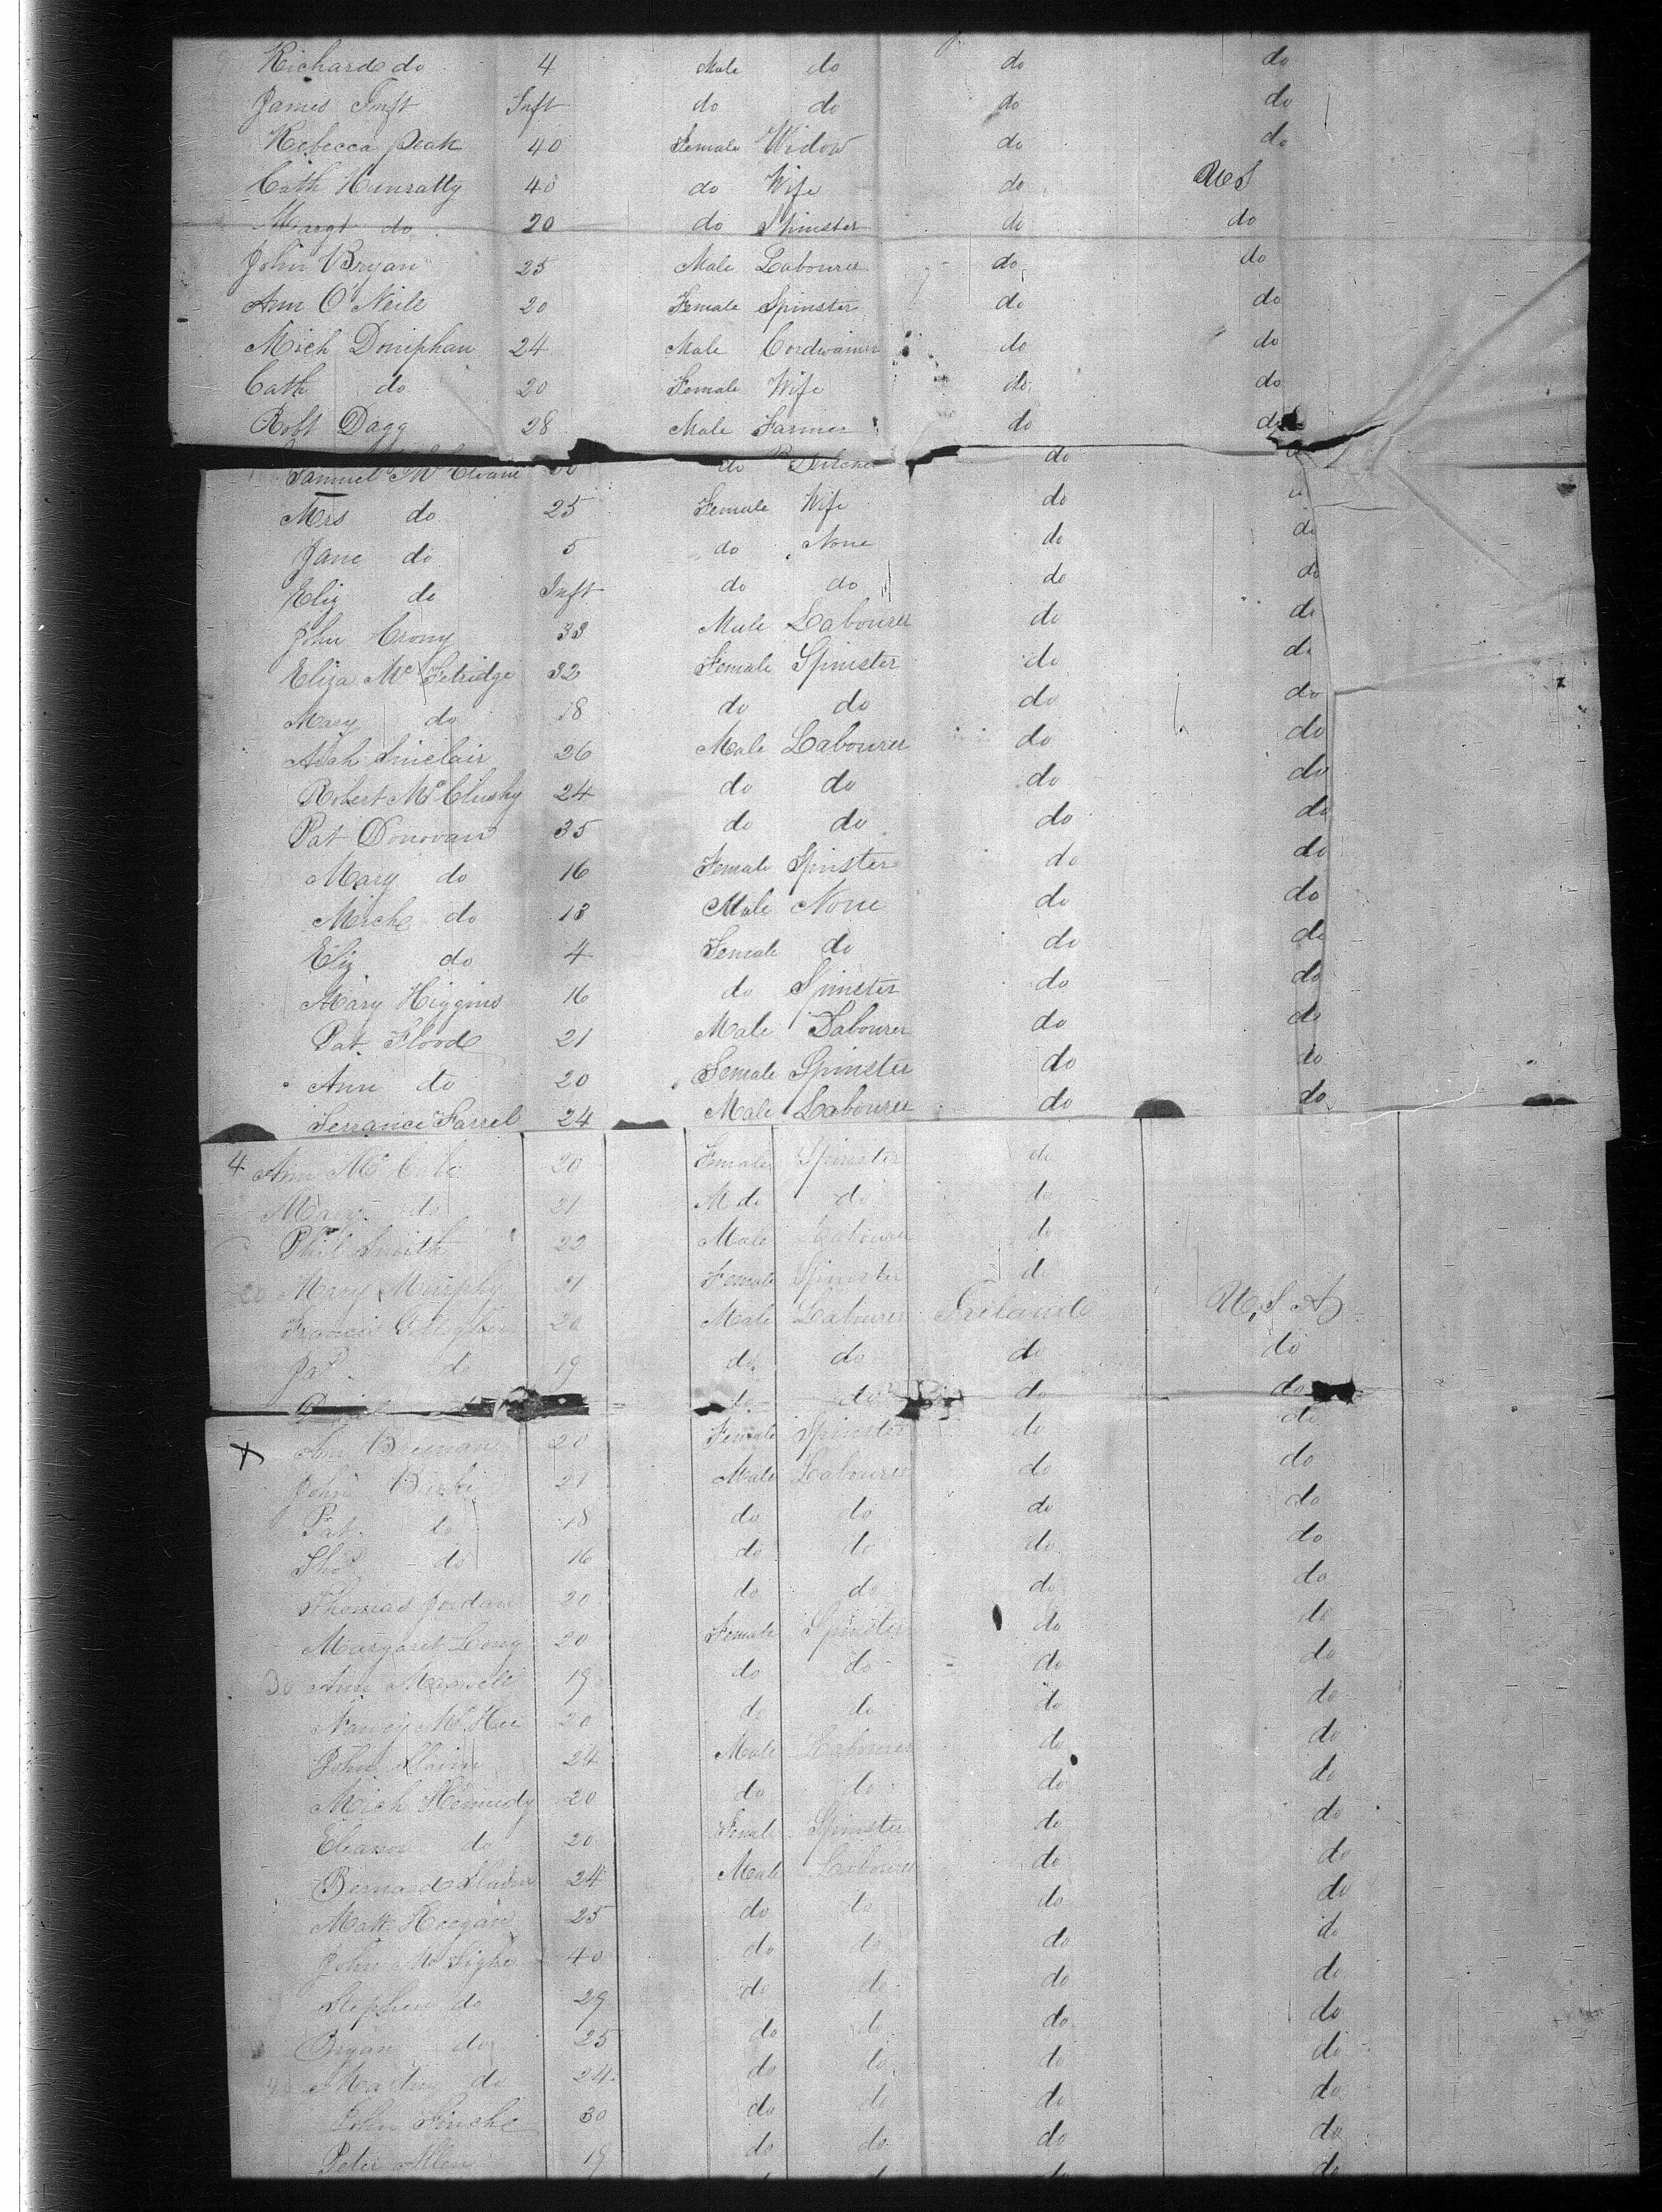 Richard do 4 Male do do do
James Inft Inft do do do do
Rebecca Peak 40 Female Widow do do
Cath Hunratty 40 do Wife do U S
Margt do 20 do Spinster do do
John Bryan 25 Male Labourer do do
Ann O'Neile 20 Female Spinster do do
Mich Doniphan 24 Male Cordwainer do do
Cath do 20 Female Wife do do
Robt Dagg 28 Male Farmer do do
Samuel Mc do do
Mrs do 25 Female Wife do
Jane do 5 do None do do
Eliz do Inft do do do do
John Crony 33 Male Labourer do do
Eliza McFetridge 32 Female Spinster do do
Mary do 18 do do do do
Arch Sinclair 26 Male Labourer do do
Robert McClusky 24 do do do do
Pat Donovan 35 do do do do
Mary do 16 Female Spinster do do
Mich do 13 Male None do do
Eliz do 4 Female do do do
Mary Higgins 16 do Spinster do do
Pat Flood 21 Male Labourer do do
Ann do 20 Female Spinster do do
Terrance Farrel 24 Male Labourer do do
4 Ann Mc 20 Female Spinster do
Mary do 21 M do do do
Phil Smith 22 Male Labourer do
Mary Murphy 21 Female Spinster do
Francis 20 Male Labourer Ireland U.S.A
do 19 do do do do
do do do
X Ann 20 Female Spinster do do
John Burke 21 Male Labourer do do
Pat do 18 do do do do
Thos do 16 do do do do
Thomas Jordan 20 do do do do
Margaret Long 20 Female Spinster do do
30 Ann Maxwell 19 do do do do
Nancy McHee 20 do do do do
John 24 Male Labourer do do
Mich Kennedy 20 do do do do
Eleanor do 20 Female Spinster do do
Bernard 24 Male Labourer do do
Matt Keegan 25 do do do do
John McTighe 40 do do do do
Stephen do 29 do do do do
Bryan do 25 do do do do
Martin do 24 do do do do
John 30 do do do do
Peter Allen 19 do do do do